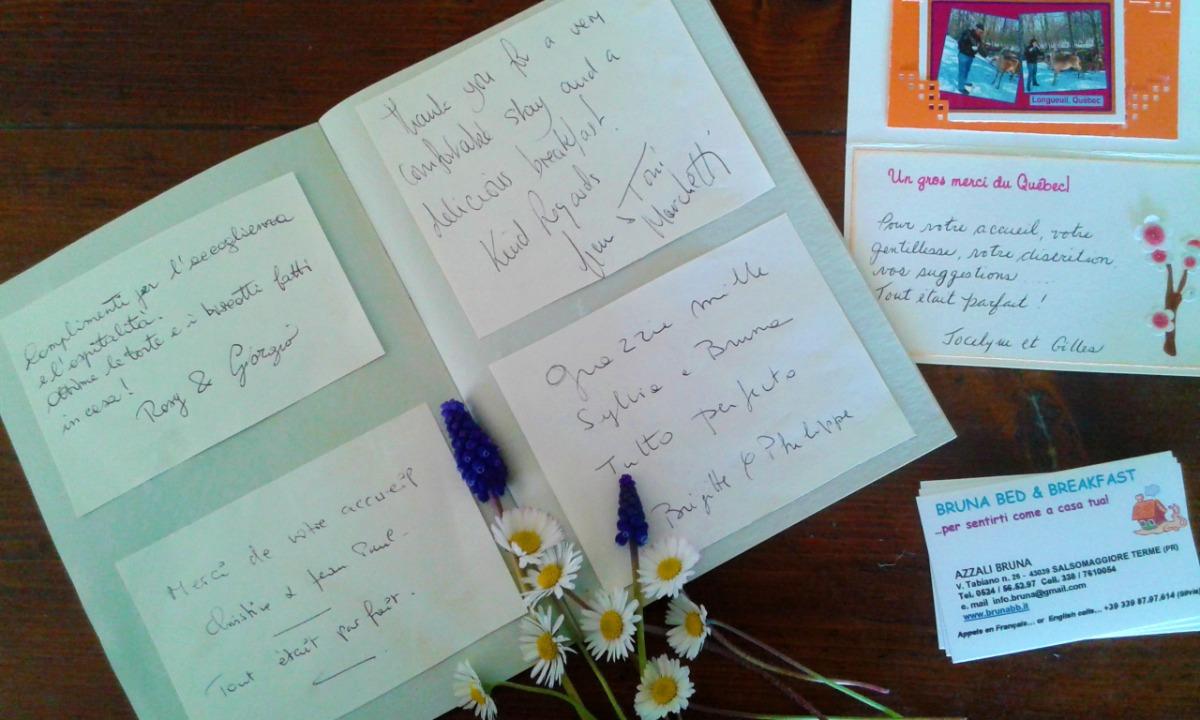 Complimenti per l'accoglienza
e l'ospitalità.
Ottime le torte e i biscotti fatti
in casa!
Rosy & Giorgio
Merci de votre accueil
Christine & Jean Paul-
Tout était parfait.
Thank you for a very
comfortable stay and a
delicious breakfast.
Kind Regards
& Toni
Marchetti
Grazzie mille
Sylvia e Bruna
Tutto perfecto
Brigitte & Philippe
Longueuil, Québec
Un gros merci du Québec!
Pour votre accueil, votre
gentillesse, votre discrétion,
vos suggestions....
Tout était parfait !
Jocelyne et Gilles
BRUNA BED & BREAKFAST
...per sentirti come a casa tua!
AZZALI BRUNA
v. Tabiano n. 26 - 43039 SALSOMAGGIORE TERME (PR)
Tel. 0524 / 56.52.97 Cell. 338 / 7610054
e. mail info.bruna@gmail.com
www.brunabb.it
Appels en Français... or English calls... +39 339 87.97.614 (Silvia)